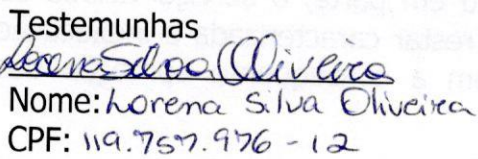 Testemunhas
Lorena Silva Oliveira
Nome: Lorena Silva Oliveira
CPF: 119.757.976-12